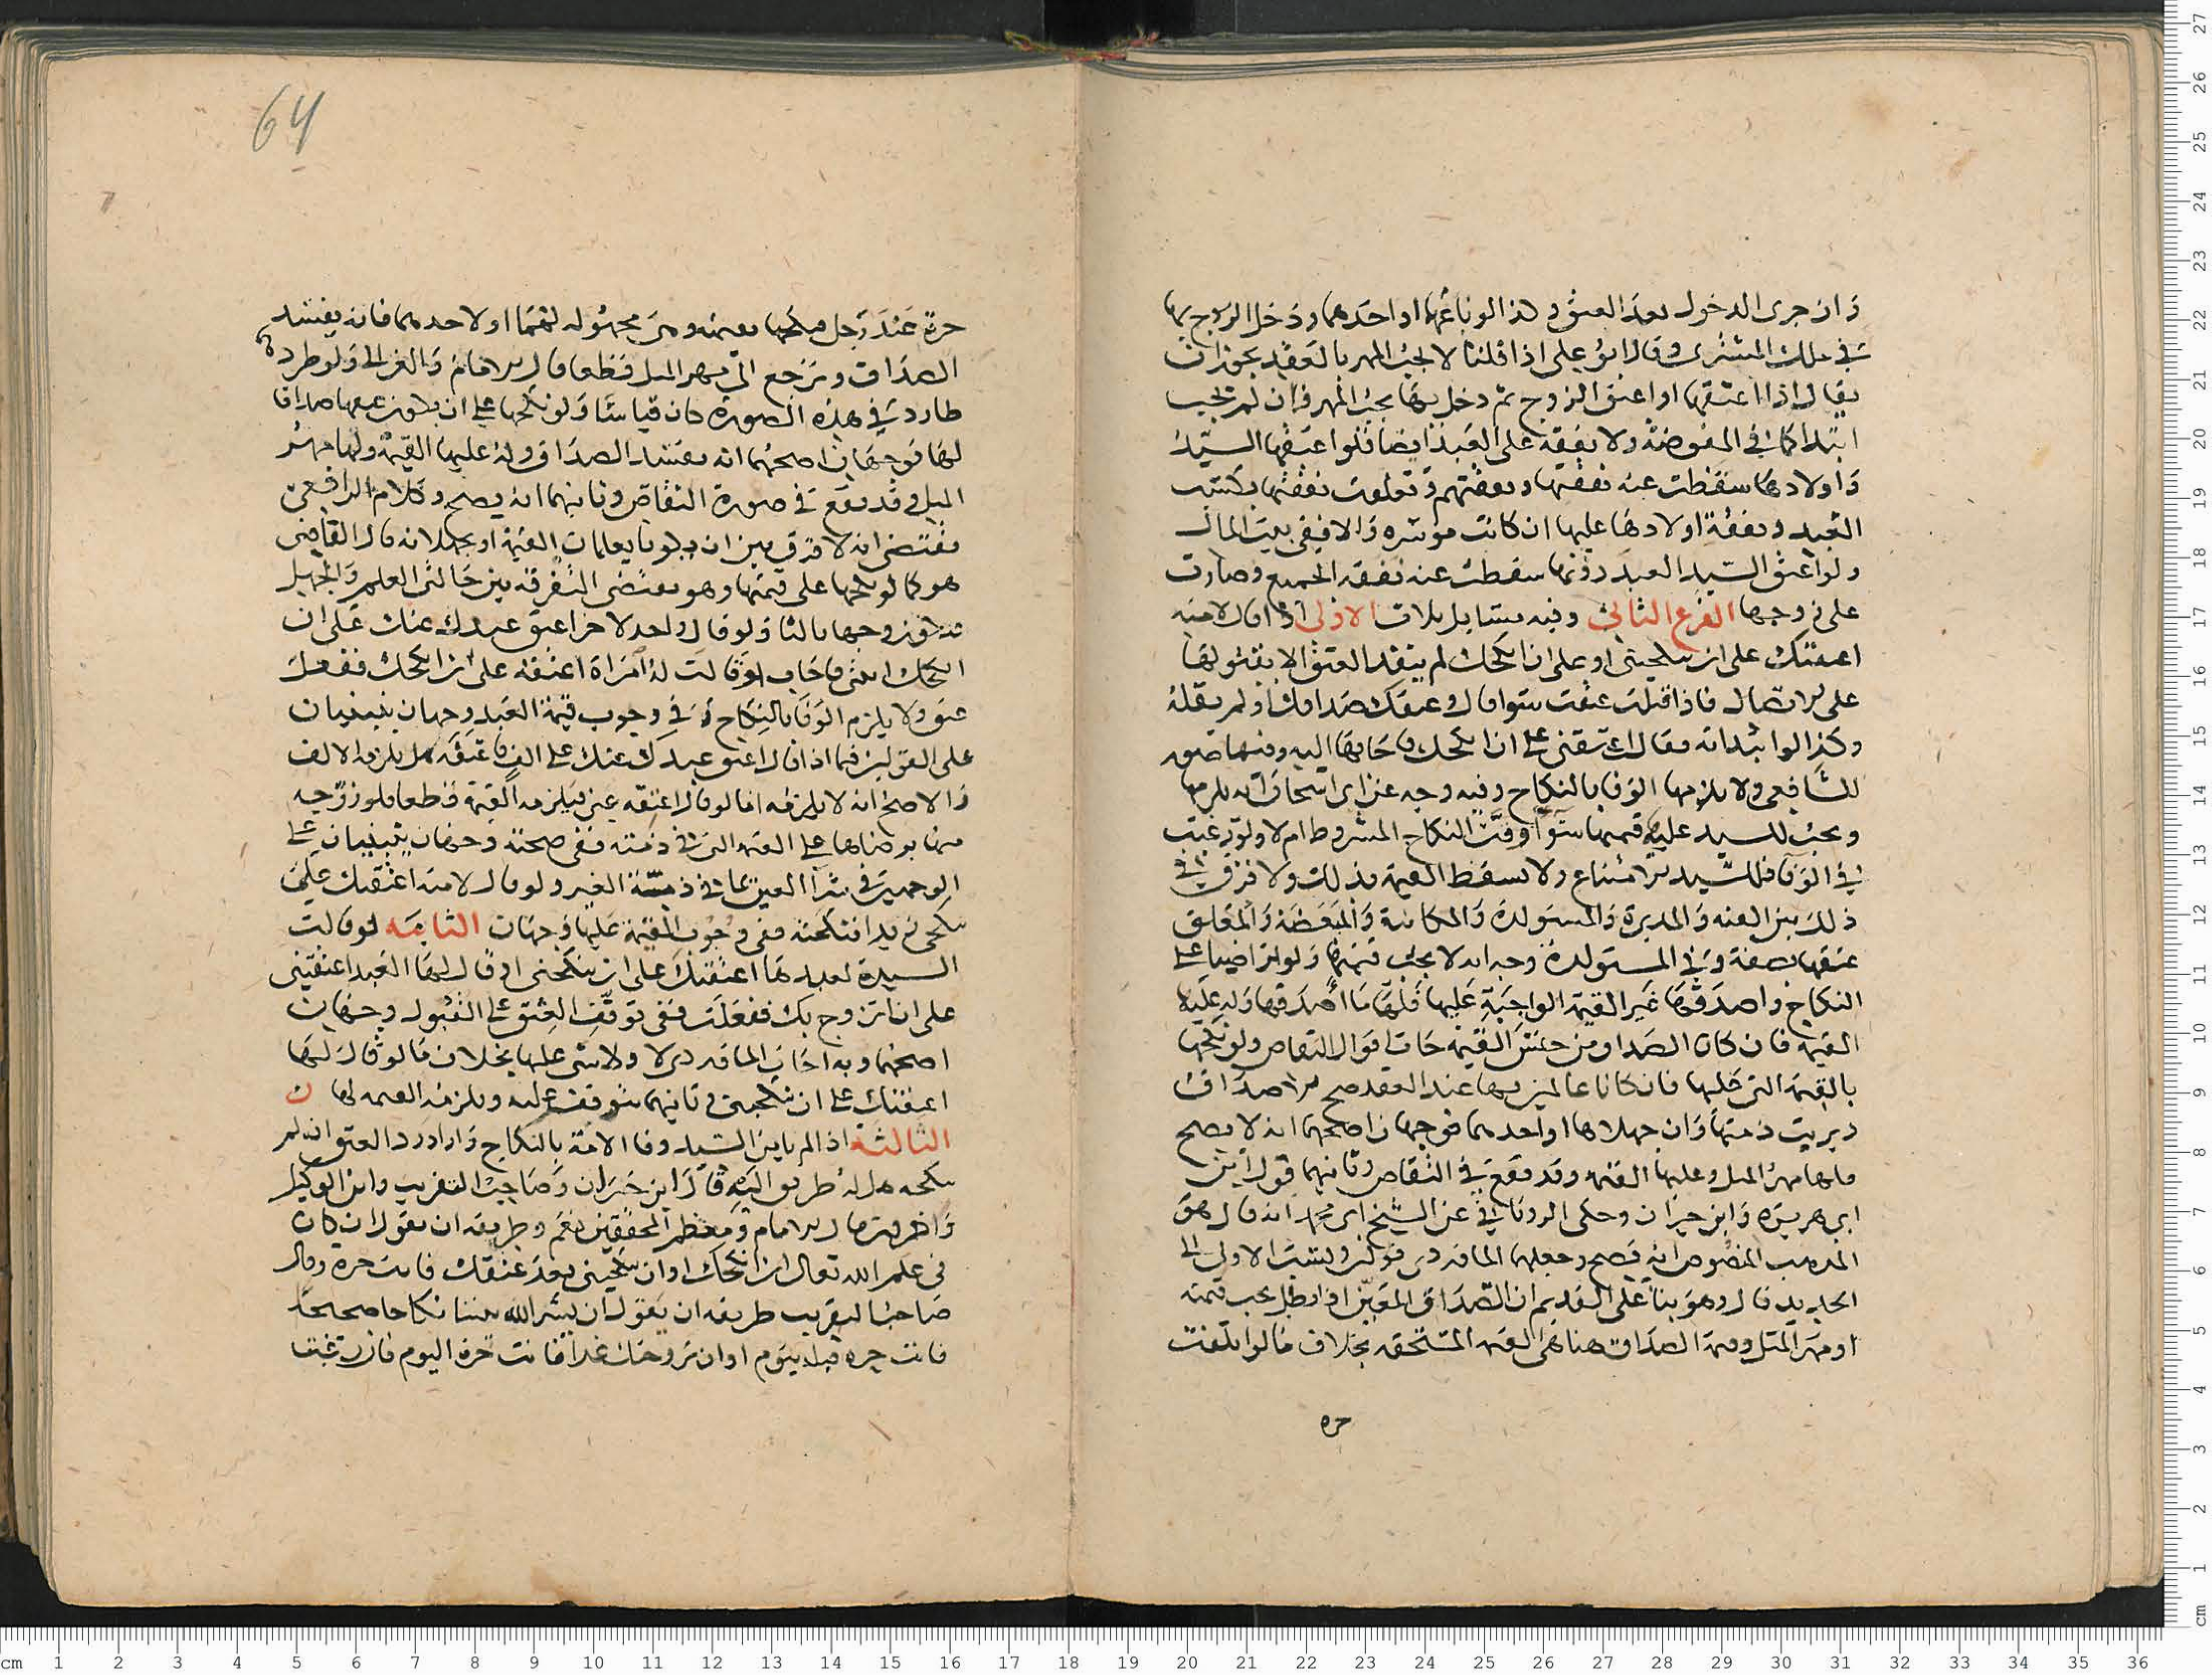 وان جرى الدخول بعد العتق وكذا لو باعها او احدهما ودخل الزوج بها
في ملك المشترى وقال ابو على اذا قلنا لا يجب المهر بالعقد يجوز ان
يقال اذا اعتقها او اعتق الزوج ثم دخل بها يجب المهر وان لم يجب
ابتدا كما في المفوضة ولا نفقة على العبد ايضا فلو اعتقها السيد
واولادها سقطت عنه نفقتها ونفقتهم وتعلقت نفقتها بكسب
العبد ونفقة اولادها عليها ان كانت موسره والا ففى بيت المال
ولو اعتق السيد العبد دونها سقطت عنه نفقه الجميع وصارت
على زوجها الفرع الثانى وفيه مسايل ثلاث الاولى اذا قال لامته
اعتقتك على ان تنكحينى او على ان انكحك لم ينفذ العتق الا بقبولها
على الاتصال فاذا قبلت عتقت سوا قال وعتقك صداقك او لم يقله
وكذا لو ابتداته فقالت اعتقنى على ان انكحك فاجابها اليه وفيها
للشافعى ولا يلزمها الوفا بالنكاح وفيه وجه عن ابى اسحاق انه يلزمها
ويجب للسيد عليها قيمتها سوا وفت النكاح المشروط ام لا ولو رغبت
في الوفا فللسيد الامتناع ولا تسقط القيمة بذلك ولا فرق في
ذلك بين القنه والمدبرة والمستولدة والمكاتبة والمبعضة والمعلق
عتقها بصفة وفي المستولدة وجه انه لا يجب قيمتها ولو تراضيا على
النكاح واصدقها غير القيمة الواجبة عليها فلها ما اصدقها وله عليها
القيمة فان كان الصداق من جنس القيمة جات اقوال التقاص ولو نكحها
بالقيمة التى عليها فان كانا عالمين بها عند العقد صح الاصداق
وبريت ذمتها وان جهلاها او احدهما فوجهان اصحهما انه لا يصح
ولها مهر المثل وعليها القيمه وقد يقع في التقاص وثانيهما قول ابن
ابى هريرة وابن خيران وحكى الرويانى في عن الشيخ ابى محمد انه قال هو
المذهب المنصوص انه يصح وجعلها الماوردى قولين ونسب الاولى الى
الجديد قال وهو بنا على القديم ان الصداق المعين اذا بطل يجب قيمته
او مهر المثل وقيمة الصداق هنا هى القيمه المستحقه بخلاف ما لو اتلفت
حره
64
حرة عند رجل فنكحها بقيمته وهى مجهوله لهما او لاحدهما فانه يفسد
الصداق ويرجع الى مهر المثل قطعا قال الامام والغزالى ولو طرد
طارد في هذه الصورة كان قياسا ولو نكحها على ان يكون عتقها صداقا
لها فوجهان اصحهما انه يفسد الصداق وله عليها القيمة ولها مهر
المثل وقد يقع في صورة التقاص وثانيهما انه يصح وكلام الرافعى
يقتضى انه لا فرق بين ان يكونا يعلمان القيمة او يجهلانه قال القاضى
هو كما لو نكحها على قيمتها وهو يقتضى التفرقة بين حالتى العلم والجهل
ولو قال واحد لاخر اعتق عبدك عنك على ان
انكحك ابنتى فاجاب او قالت له امراة اعتقه على ان انكحك ففعل
عتق ولا يلزم الوفا بالنكاح وفي وجوب قيمة العبد وجهان ينبنيان
على القولين فيما اذا قال اعتق عبدك عنك على الف فاعتقه هل يلزمه الالف
والاصح انه لا يلزمه اما لو قال اعتقه عنى فيلزمه القيمة قطعا فلو زوجه
منها برضاها على القيمة التى في ذمته ففى صحته وجهان ينبنيان على
الوجهين في شرا العين بما في ذمة الغير ولو قال لامته اعتقتك على ان
تنكحى زيدا فنكحته ففى وجوب القيمة عليها وجهان الثانيه لو قالت
السيدة لعبدها اعتقتك على ان تنكحنى او قال لها العبد اعتقينى
على ان اتزوج بك ففعلت ففى توقف العتق على القبول وجهان
اصحهما وبه اجاب الماوردى لا ولا شى عليه بخلاف ما لو قال لها
اعتقتك على ان تنكحينى وثانيهما يتوقف عليه ويلزمه القيمه لها ن
الثالثة اذا لم يامن السيد وفا الامة بالنكاح واراد رد العتق ان لم
تنكحه هل له طريق اليه قال ابن خيران وصاحب التقريب وابن الوكيل
واخرون قال الامام ومعظم المحققين نعم وطريقه ان يقول ان كان
فى علم الله تعالى ان انكحك او ان تنكحينى بعد عتقك فانت حرة وقال
صاحب التقريب طريقه ان يقول ان يسر الله بيننا نكاحا صحيحا
فانت حره قبله بيوم او ان تزوجتك غدا فانت حرة اليوم فان رغبت